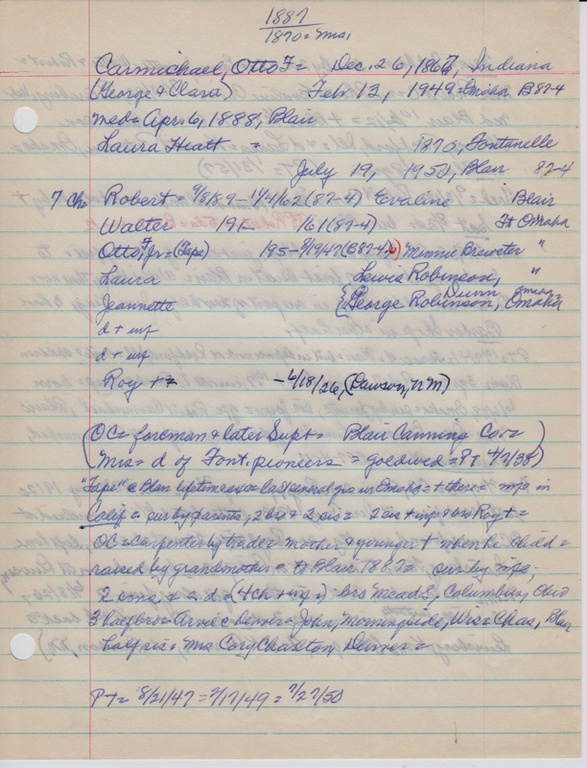 1887
1870 = Mrs.
Carmichael, Otto F = Dec. 26, 1867, Indiana
(George & Clara) Feb 12, 1949 = Omaha B87-4
med = Apr. 6, 1888, Blair
Laura Hiatt = = 1870, Fontanelle
July 19, 1950, Blair 87-4
7 Ch Robert = 9/8/89 - 1/4/62 (87-4) Evaline Blair
Walter 191- 161 (87-4) Ft Omaha
Otto F Jr = (Tape) 195 - 8/1947 (B87-4) Minnie Brewster "
Laura Lewis Robinson, "
Jeannette George Robinson, Dunn Omaha, Omaha
d + inf
d + inf
Roy + = - 6/18/26, (Dawson, NM)
(OC = foreman & later Supt = Blair Canning Co. =
(Mrs = d of Font. pioneers = goldwed = 87 4/7/38)
"Tape" = Blair lifetime = last several yrs in Omaha = + there = wife in
Calif = sur by parents, 2 brs & 2 sis = 2 sis + inf & bro Roy + =
OC = carpenter by trade = mother & younger + when he child =
raised by grandmother = to Blair 1887 = sur by wife,
2 sons & 2 d (4 ch + inf =) brs Mead S, Columbus, Ohio
3 half bros = Arvie = Denver = John, Morningside, Wis = Chas, Blair
half sis = Mrs Cory Charlton, Denver =
PT = 8/21/47 = 2/17/49 = 7/27/50